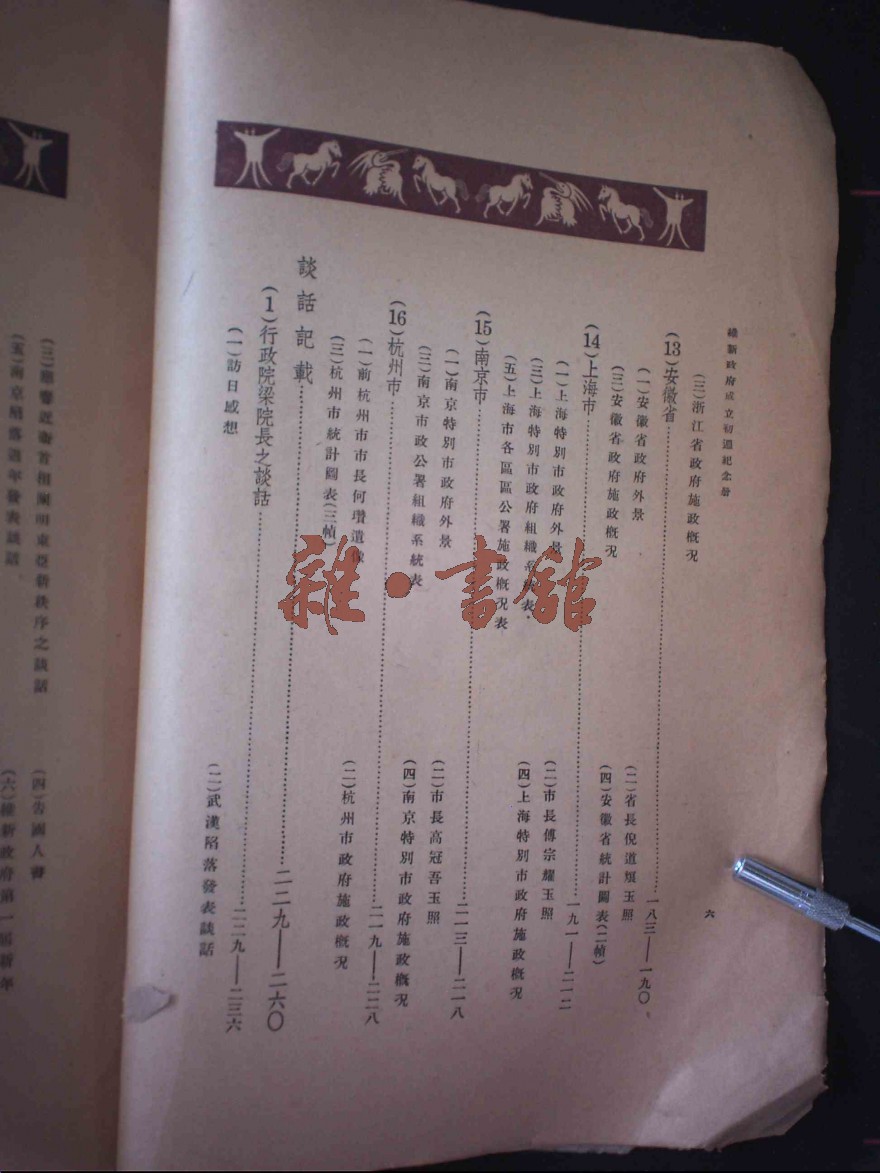 維新政府成立初週紀念册
六
(三)浙江省政府施政概况
(13)安徽省 一八三—一九〇
(一)安徽省政府外景
(二)省長倪道烺玉照
(三)安徽省政府施政概况
(四)安徽省統計圖表(二幀)
(14)上海市 一九一—二一二
(一)上海特別市政府外景
(二)市長傅宗耀玉照
(三)上海特別市政府組織系統表
(四)上海特別市政府施政概况
(五)上海市各區區公署施政概况表
(15)南京市 二一三—二一八
(一)南京特別市政府外景
(二)市長高冠吾玉照
(三)南京市政公署組織系統表
(四)南京特別市政府施政概况
(16)杭州市 二一九—二二八
(一)前杭州市市長何瓚遺像
(二)杭州市政府施政概况
(三)杭州市統計圖表(三幀)
談話記載 二二九—二六〇
(1)行政院梁院長之談話 二二九—二三六
(一)訪日感想
(二)武漢陷落發表談話
(三)響近衛首相闡明東亞新秩序之談話
(四)告國人書
(五)南京陷落週年發表談話
(六)維新政府第一屆新年
雜·書舘